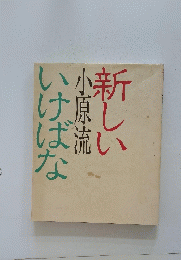 新しい
小原流
いけばな